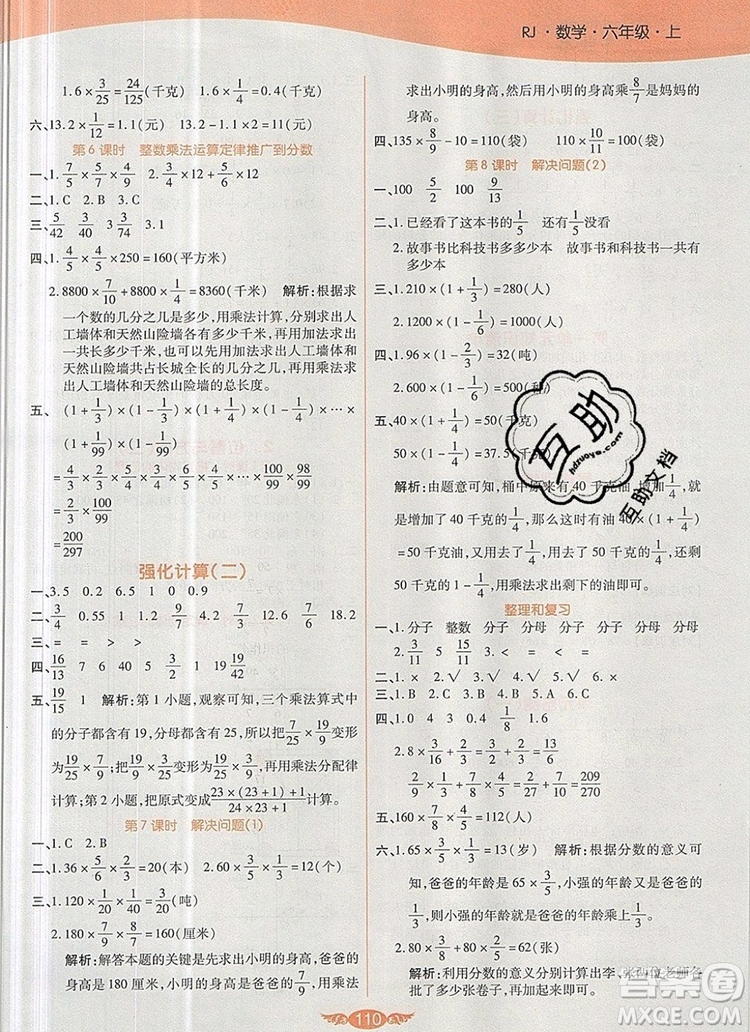 RJ·数学·六年级·上
1.6×3/25=24/125(千克)　1.6×1/4=0.4(千克)
六、13.2×1/12=1.1(元)　13.2-1.1×2=11(元)
第6课时　整数乘法运算定律推广到分数
一、1. 7/5 5/7 7/5 5/7　2. 12/5 4/5 12/5 5/6
二、1.C　2.B　3.A
三、5/42　3/40　3　3/74
四、1. 4/5×4/5×250=160(平方米)
2.8800×7/10+8800×1/4=8360(千米)　解析:根据求
一个数的几分之几是多少,用乘法计算,分别求出人
工墙体和天然山险墙有多少千米,再用加法求出一
共长多少千米,也可以先用加法求出人工墙体和天
然山险墙一共占长城全长的几分之几,再用乘法求
出人工墙体和天然山险墙的总长度。
五、(1+1/2)×(1-1/3)×(1+1/4)×(1-1/5)×…×
(1+1/99)×(1-1/99)
=3/2×2/3×5/4×4/5×…×100/99×98/99
=2/3×100/99
=200/297
强化计算(二)
一、3.5　0.2　6.5　1　0　0.9
二、3/4　0.55　1　1.2　9/7　4.2　2/7　12.6　7/6　18.2
三、=　=　=　<　>　>
四、16/13　7/16　57　40　3/2　1　19　19/42
五、19/15　1　解析:第1小题,观察可知,三个乘法算式中
的分子都含有19,分母都含有25,所以把7/25×19/9变形
为19/25×7/9,把7/15×19/25变形为19/25×7/15,再用乘法分配律
计算;第2小题,把原式变形成23×(23+1)+23/24×23+1计算。
第7课时　解决问题(1)
一、1.C　2.B
二、1.36×5/6×2/3=20(本)　2.60×3/12×4/5=12(人)
三、1.120×1/20×1/40=3/20(吨)
2.180×7/9×8/7=160(厘米)
解析:解答本题的关键是先求出小明的身高,爸爸的
身高是180厘米,小明的身高是爸爸的7/9,用乘法
求出小明的身高,再用小明的身高乘8/7是妈妈的
身高。
四、135×8/9-10=110(袋)　110×10/11=100(袋)
第8课时　解决问题(2)
一、100　5/2　100　3/5
二、1.已经看了这本书的1/5　还有1/5没看
2.故事书比科技书多多少本　故事书和科技书一共有
多少本
三、1.210×(1+1/3)=280(人)
2.1200×(1-1/6)=1000(人)
四、1.96×(1-2/3)=32(吨)
2.600×(1-1/12)=550(种)
五、40×(1+1/4)=50(千克)
50×(1-1/4)=37.5(千克)
解析:由题意可知,桶中原来有40千克油,增加1/4,就
是增加了40千克的1/4,那么这时有油(1+1/4)×40
=50千克,又用去1/4,是用去50千克的1/4,还剩50
千克的1-1/4,用乘法求出剩下的油即可。
整理和复习
一、1.分子　整数　分子　分母　分母　分子　分母
2.3/11　5　15/11　0　1
二、1.×　2.√　3.×　4.√　5.√　6.√
三、1.B　2.C　3.B　4.A
四、1.0　4　3　0.4　1/8　1.6
2.8×3/16+2/3=3/2+2/3=13/6
2/9×21/10+7/12=7/15+7/12=209/270
五、160×7/8×4/5=112(人)
六、1.65×3/5×1/3=13(岁)　解析:根据分数的意义可
知,爸爸的年龄是爷爷的3/5,即爸爸的年龄是65×3/5
岁,小强的年龄是爸爸的1/3,即小强的年龄是爸爸的
年龄乘1/3。
2.80×3/8+80×2/5=62(张)
解析:利用分数的意义分别计算出李、张两位老师各
批了多少张卷子,再用加法求和。
110
互助
hdzuoye.com
互助文档
作业答案
MXQE.COM